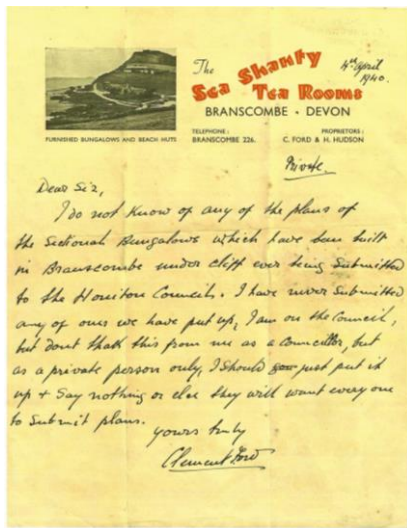 The
Sea Shanty
Tea Rooms
4th April
1940.
BRANSCOMBE • DEVON
FURNISHED BUNGALOWS AND BEACH HUTS
TELEPHONE :
BRANSCOMBE 226.
PROPRIETORS :
C. FORD & H. HUDSON
Private.
Dear Sir,
I do not know of any of the plans of
the Sectional Bungalows which have been built
in Branscombe under cliff ever being Submitted
to the Honiton Council. I have never Submitted
any of ours we have put up, I am on the Council,
but dont this from me as a Councillor, but
as a private person only, I should just put it
up + Say nothing or else they will want everyone
to Submit plans.
yours truly
Clement Ford